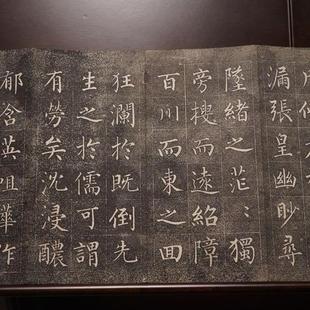 漏張皇幽眇尋
墜緒之茫〻獨
旁搜而遠紹障
百川而東之囬
狂瀾於既倒先
生之於儒可謂
有勞矣沈浸醲
郁含英咀華作